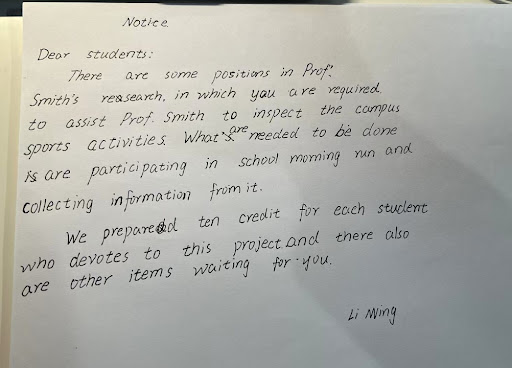 Notice
Dear students:
There are some positions in Prof.
Smith's reasearch, in which you are required
to assist Prof. Smith to inspect the campus
sports activities. What's are needed to be done
is are participating in school morning run and
collecting information from it.
We prepared ten credit for each student
who devotes to this project and there also
are other items waiting for you.
Li Ming